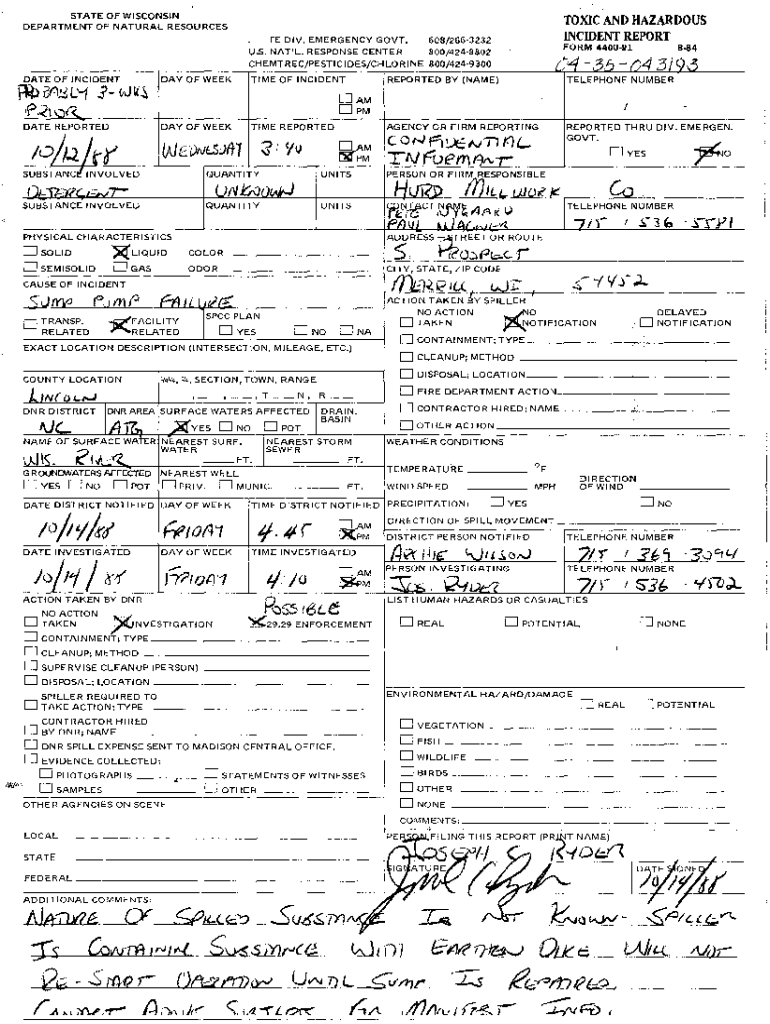 STATE OF WISCONSIN
DEPARTMENT OF NATURAL RESOURCES
TOXIC AND HAZARDOUS
INCIDENT REPORT
FORM 4400-91 8-84
TE DIV. EMERGENCY GOVT. 608/266-3232
U.S. NAT'L. RESPONSE CENTER 800/424-8802
CHEMTREC/PESTICIDES/CHLORINE 800/424-9300
C4-35-043193
DATE OF INCIDENT DAY OF WEEK TIME OF INCIDENT REPORTED BY (NAME) TELEPHONE NUMBER
PROBABLY 3-WKS AM
PRIOR PM /
DATE REPORTED DAY OF WEEK TIME REPORTED AGENCY OR FIRM REPORTING REPORTED THRU DIV. EMERGEN. GOVT.
10/12/88 WEDNESDAY 3:40 AM PM CONFIDENTIAL INFORMANT YES NO
SUBSTANCE INVOLVED QUANTITY UNITS PERSON OR FIRM RESPONSIBLE
DETERGENT UNKNOWN HURD MILLWORK CO
SUBSTANCE INVOLVED QUANTITY UNITS CONTACT NAME TELEPHONE NUMBER
PETE NYGAARD
PAUL WAGNER 715 / 536-5581
PHYSICAL CHARACTERISTICS ADDRESS - STREET OR ROUTE
SOLID LIQUID COLOR S. PROSPECT
SEMISOLID GAS ODOR CITY, STATE, ZIP CODE
CAUSE OF INCIDENT MERRILL, WI, 54452
SUMP PUMP FAILURE ACTION TAKEN BY SPILLER
TRANSP. RELATED FACILITY RELATED SPCC PLAN YES NO NA NO ACTION TAKEN NO NOTIFICATION DELAYED NOTIFICATION
EXACT LOCATION DESCRIPTION (INTERSECTION, MILEAGE, ETC.) CONTAINMENT; TYPE
CLEANUP; METHOD
DISPOSAL; LOCATION
COUNTY LOCATION ¼¼, ¼, SECTION, TOWN, RANGE
LINCOLN , , , T N, R FIRE DEPARTMENT ACTION
DNR DISTRICT DNR AREA SURFACE WATERS AFFECTED DRAIN. BASIN CONTRACTOR HIRED; NAME
NC YES NO POT OTHER ACTION
NAME OF SURFACE WATER NEAREST SURF. WATER NEAREST STORM SEWER WEATHER CONDITIONS
WIS. RIVER FT. FT.
GROUNDWATERS AFFECTED NEAREST WELL TEMPERATURE °F
YES NO POT PRIV. MUNIC. FT. WIND SPEED MPH DIRECTION OF WIND
DATE DISTRICT NOTIFIED DAY OF WEEK TIME DISTRICT NOTIFIED PRECIPITATION: YES NO
10/14/88 FRIDAY 4:45 AM PM DIRECTION OF SPILL MOVEMENT
DISTRICT PERSON NOTIFIED TELEPHONE NUMBER
DATE INVESTIGATED DAY OF WEEK TIME INVESTIGATED ARCHIE WILSON 715 / 369-3094
10/14/88 FRIDAY 4:10 AM PM PERSON INVESTIGATING TELEPHONE NUMBER
JOS. RYDER 715 / 536-4502
ACTION TAKEN BY DNR POSSIBLE LIST HUMAN HAZARDS OR CASUALTIES
NO ACTION TAKEN INVESTIGATION 29.29 ENFORCEMENT REAL POTENTIAL NONE
CONTAINMENT; TYPE
CLEANUP; METHOD
SUPERVISE CLEANUP (PERSON)
DISPOSAL; LOCATION
SPILLER REQUIRED TO TAKE ACTION; TYPE ENVIRONMENTAL HAZARD/DAMAGE REAL POTENTIAL
CONTRACTOR HIRED BY DNR; NAME VEGETATION
DNR SPILL EXPENSE SENT TO MADISON CENTRAL OFFICE. FISH
EVIDENCE COLLECTED: WILDLIFE
PHOTOGRAPHS STATEMENTS OF WITNESSES BIRDS
SAMPLES OTHER OTHER
OTHER AGENCIES ON SCENE NONE
COMMENTS:
LOCAL PERSON FILING THIS REPORT (PRINT NAME)
JOSEPH C RYDER
STATE SIGNATURE DATE SIGNED
FEDERAL 10/14/88
ADDITIONAL COMMENTS:
NATURE OF SPILLED SUBSTANCE IS NOT KNOWN- SPILLER
IS CONTAINING SUBSTANCE WITH EARTHEN DIKE WILL NOT
RE-START OPERATION UNTIL SUMP IS REPAIRED
CANNOT FOR MANIFEST INFO.